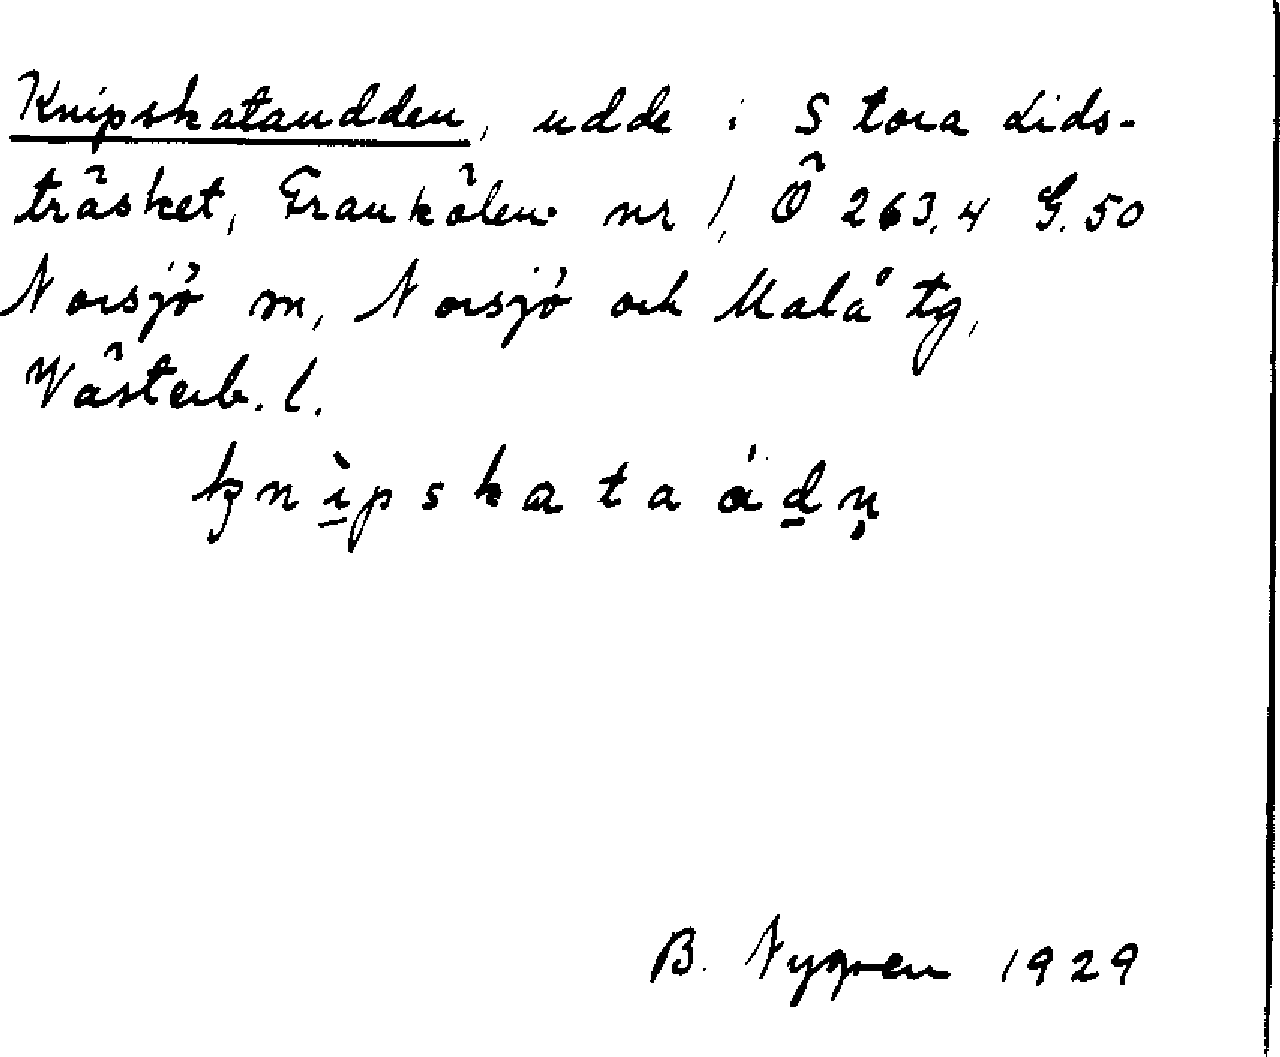 Knipskataudden, udde i Stora Lids-
träsket, Fraukälen nr 1, Ö 263,4 G. 50
Norsjö sn, Norsjö och Malå tg,
Västerb. l.
B. Nygren 1929